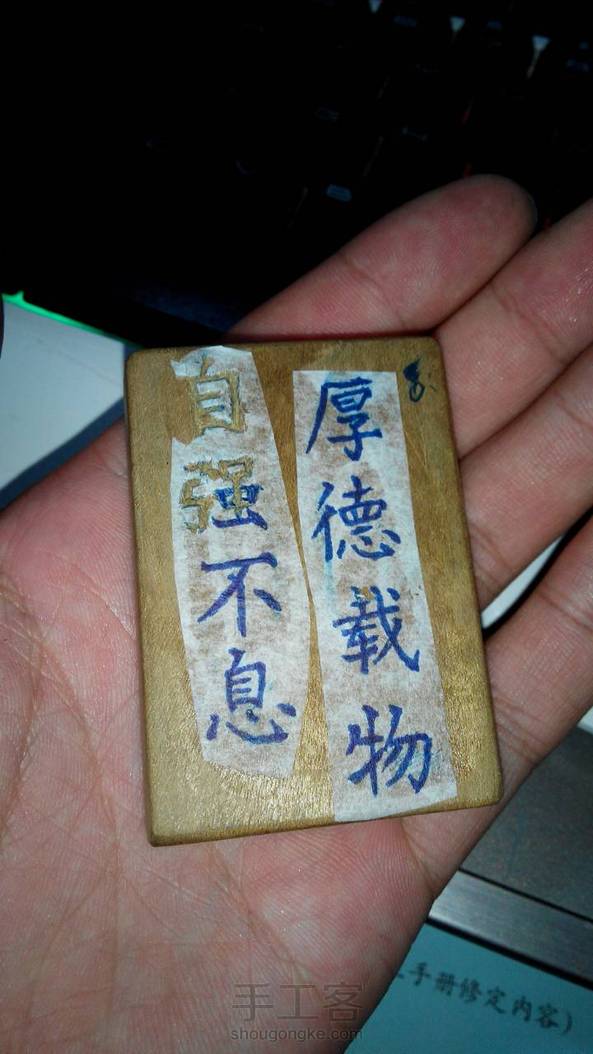 自强不息
厚德载物
手册修定内容）
手工客
shougongke.com